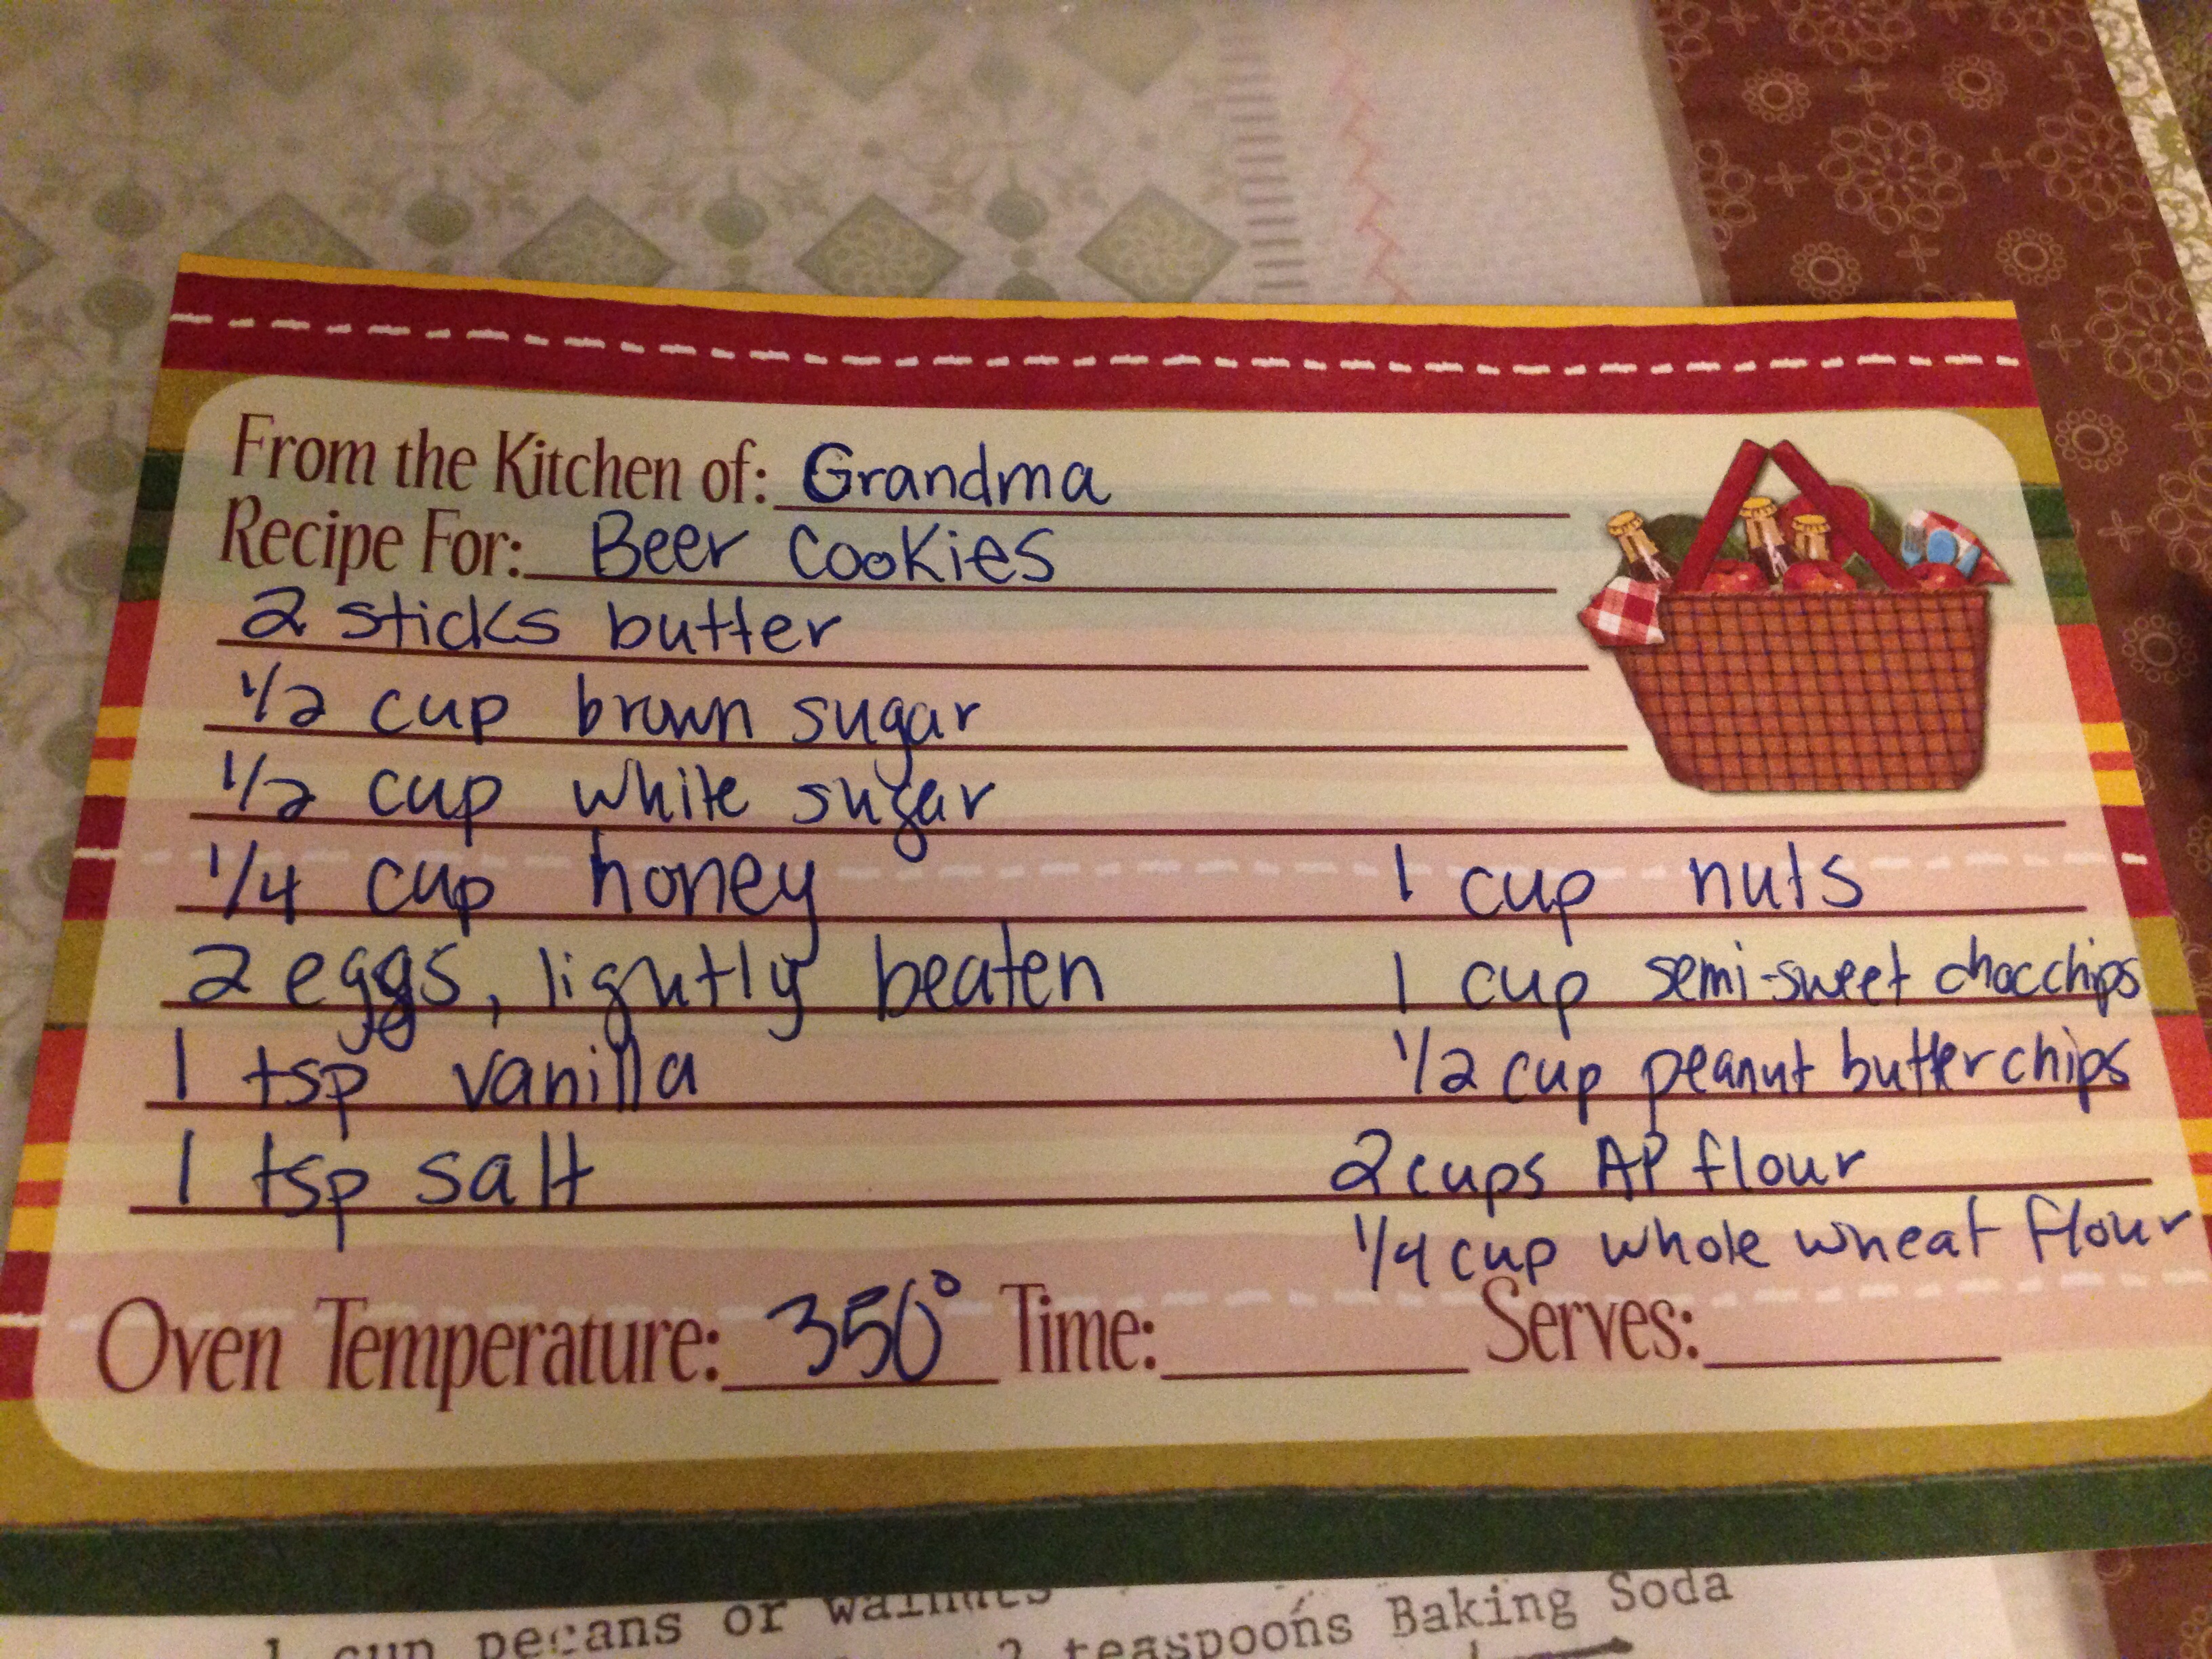 From the Kitchen of: Grandma
Recipe For: Beer Cookies
2 sticks butter
1/2 cup brown sugar
1/2 cup white sugar
1/4 cup honey
2 eggs, lightly beaten
1 tsp vanilla
1 tsp salt
1 cup nuts
1 cup semi-sweet choc chips
1/2 cup peanut butter chips
2 cups AP flour
1/4 cup whole wheat flour
Oven Temperature: 350° Time: Serves:
1 cup pecans or walnuts
2 teaspoons Baking Soda